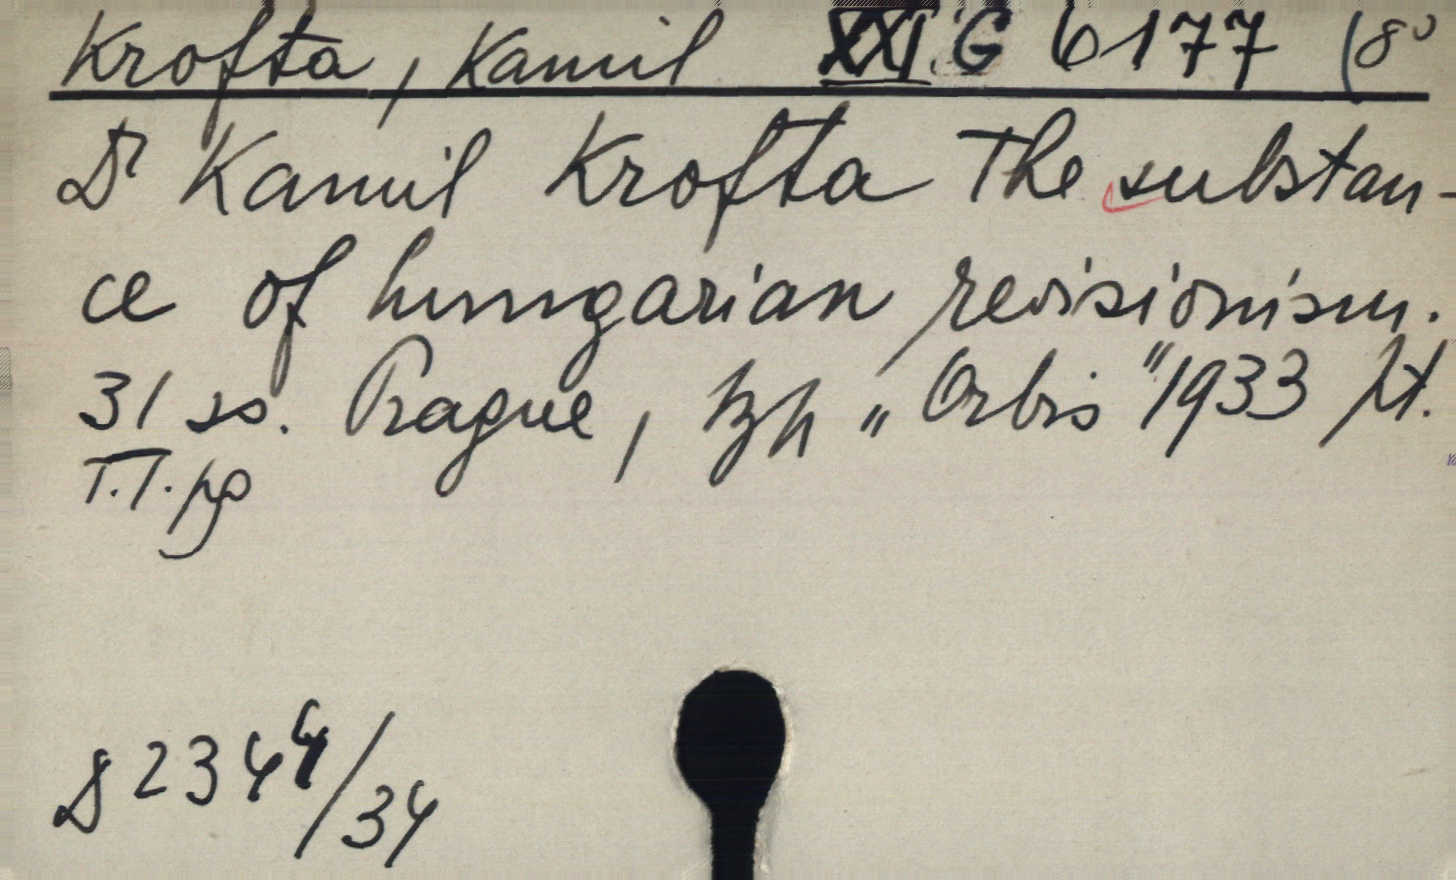 Krofta, Kamil XXI.G 6177 (8°
Dr Kamil Krofta The substan-
ce of hungarian revisionism.
31 ss. Prague, tzh „Orbis" 1933 pt.
T.T.pg
D 2344/34